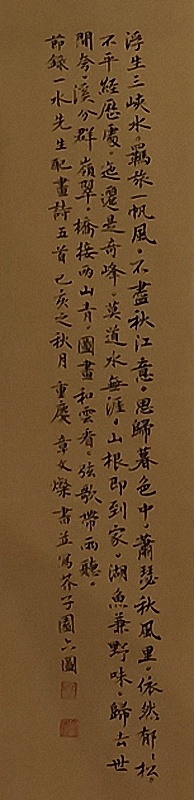 浮生三峽水。羈旅一帆風。不盡秋江意。思歸暮色中。蕭瑟秋風里。依然郁郁松。
不平經歷處。迤邐是奇峰。莫道水無涯。山根即到家。湖魚兼野味。歸去世
間夸。溪分群嶺翠。橋接兩山青。圖畫和雲看。弦歌帶雨聽。
節錄一水先生配畫詩五首己亥之秋月重慶章文燦書並寫芥子園六圖